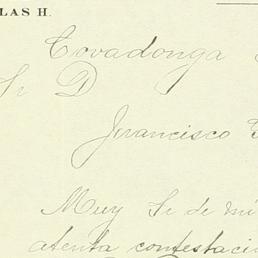 LAS H.
Covadonga
Sr D
Francisco
Muy Sr de mi
atenta contestaci